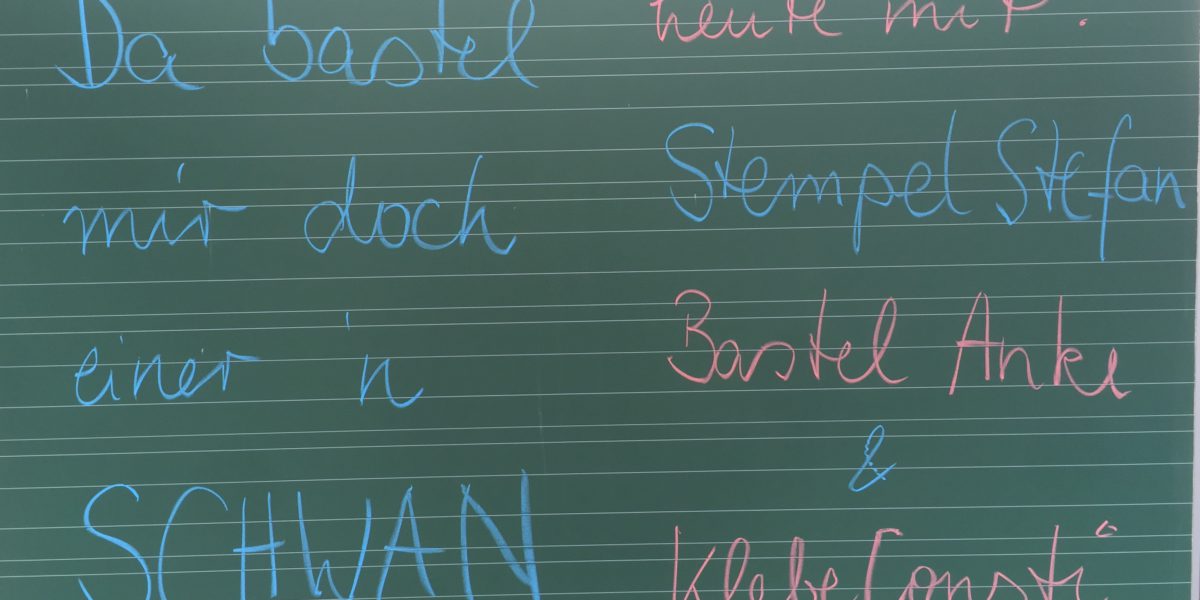 Da bastel
mir doch
einer 'n
SCHWAN
heute mit:
Stempel Stefan
Bastel Anke
&
Klebe Consti